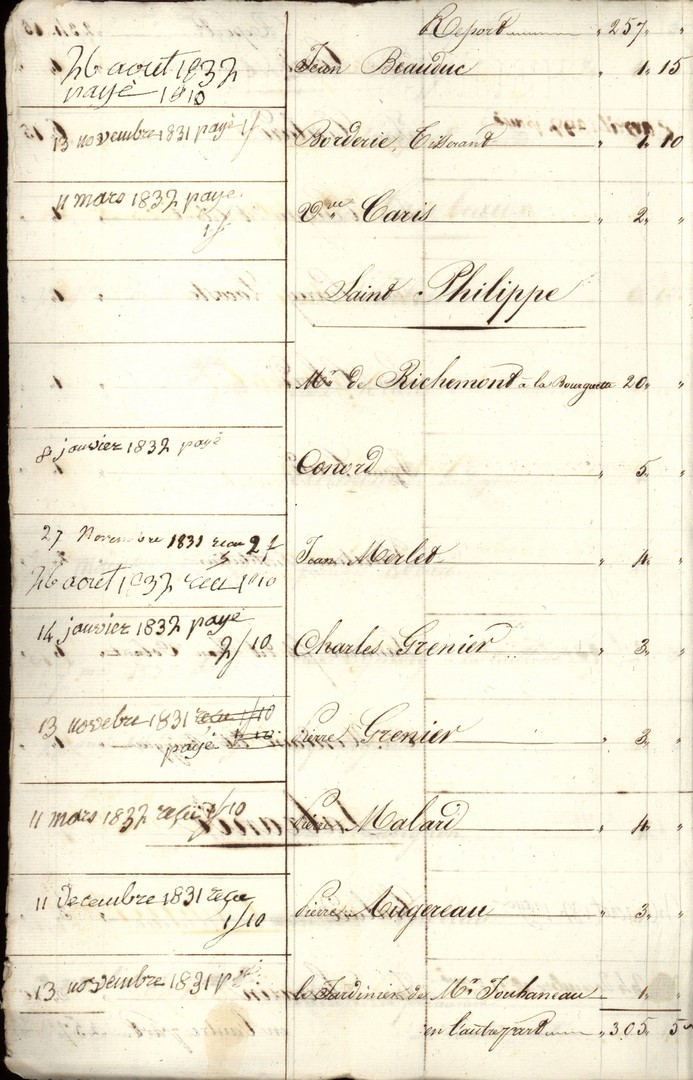 Report " 257 "
26 aout 1832 Jean Beauduc " 1 15
payé 1 10
13 novembre 1831 payé 1f Borderie, Tisserant " 1 10
11 mars 1832 payé Vve Caris " 2 "
1f
Saint Philippe
Mr de Richemont à la Bourguette 20 "
8 janvier 1832 payé Conord " 5 "
27 Novembre 1831 recu 2f
Jean Merlet " 4 "
26 aout 1832 recu 1f 10
14 janvier 1832 payé
2f 10 Charles Grenier " 3 "
13 novebre 1831 recu 1f 10
payé Pierre Grenier " 3 "
11 mars 1832 reçu 10 Pierre Malard " 4 "
11 Decembre 1831 reçu Pierre Augereau " 3 "
1f 10
13 novembre 1831 le Jardinier de Mr Jouhaneau 1 "
en l'autre part " 305 5